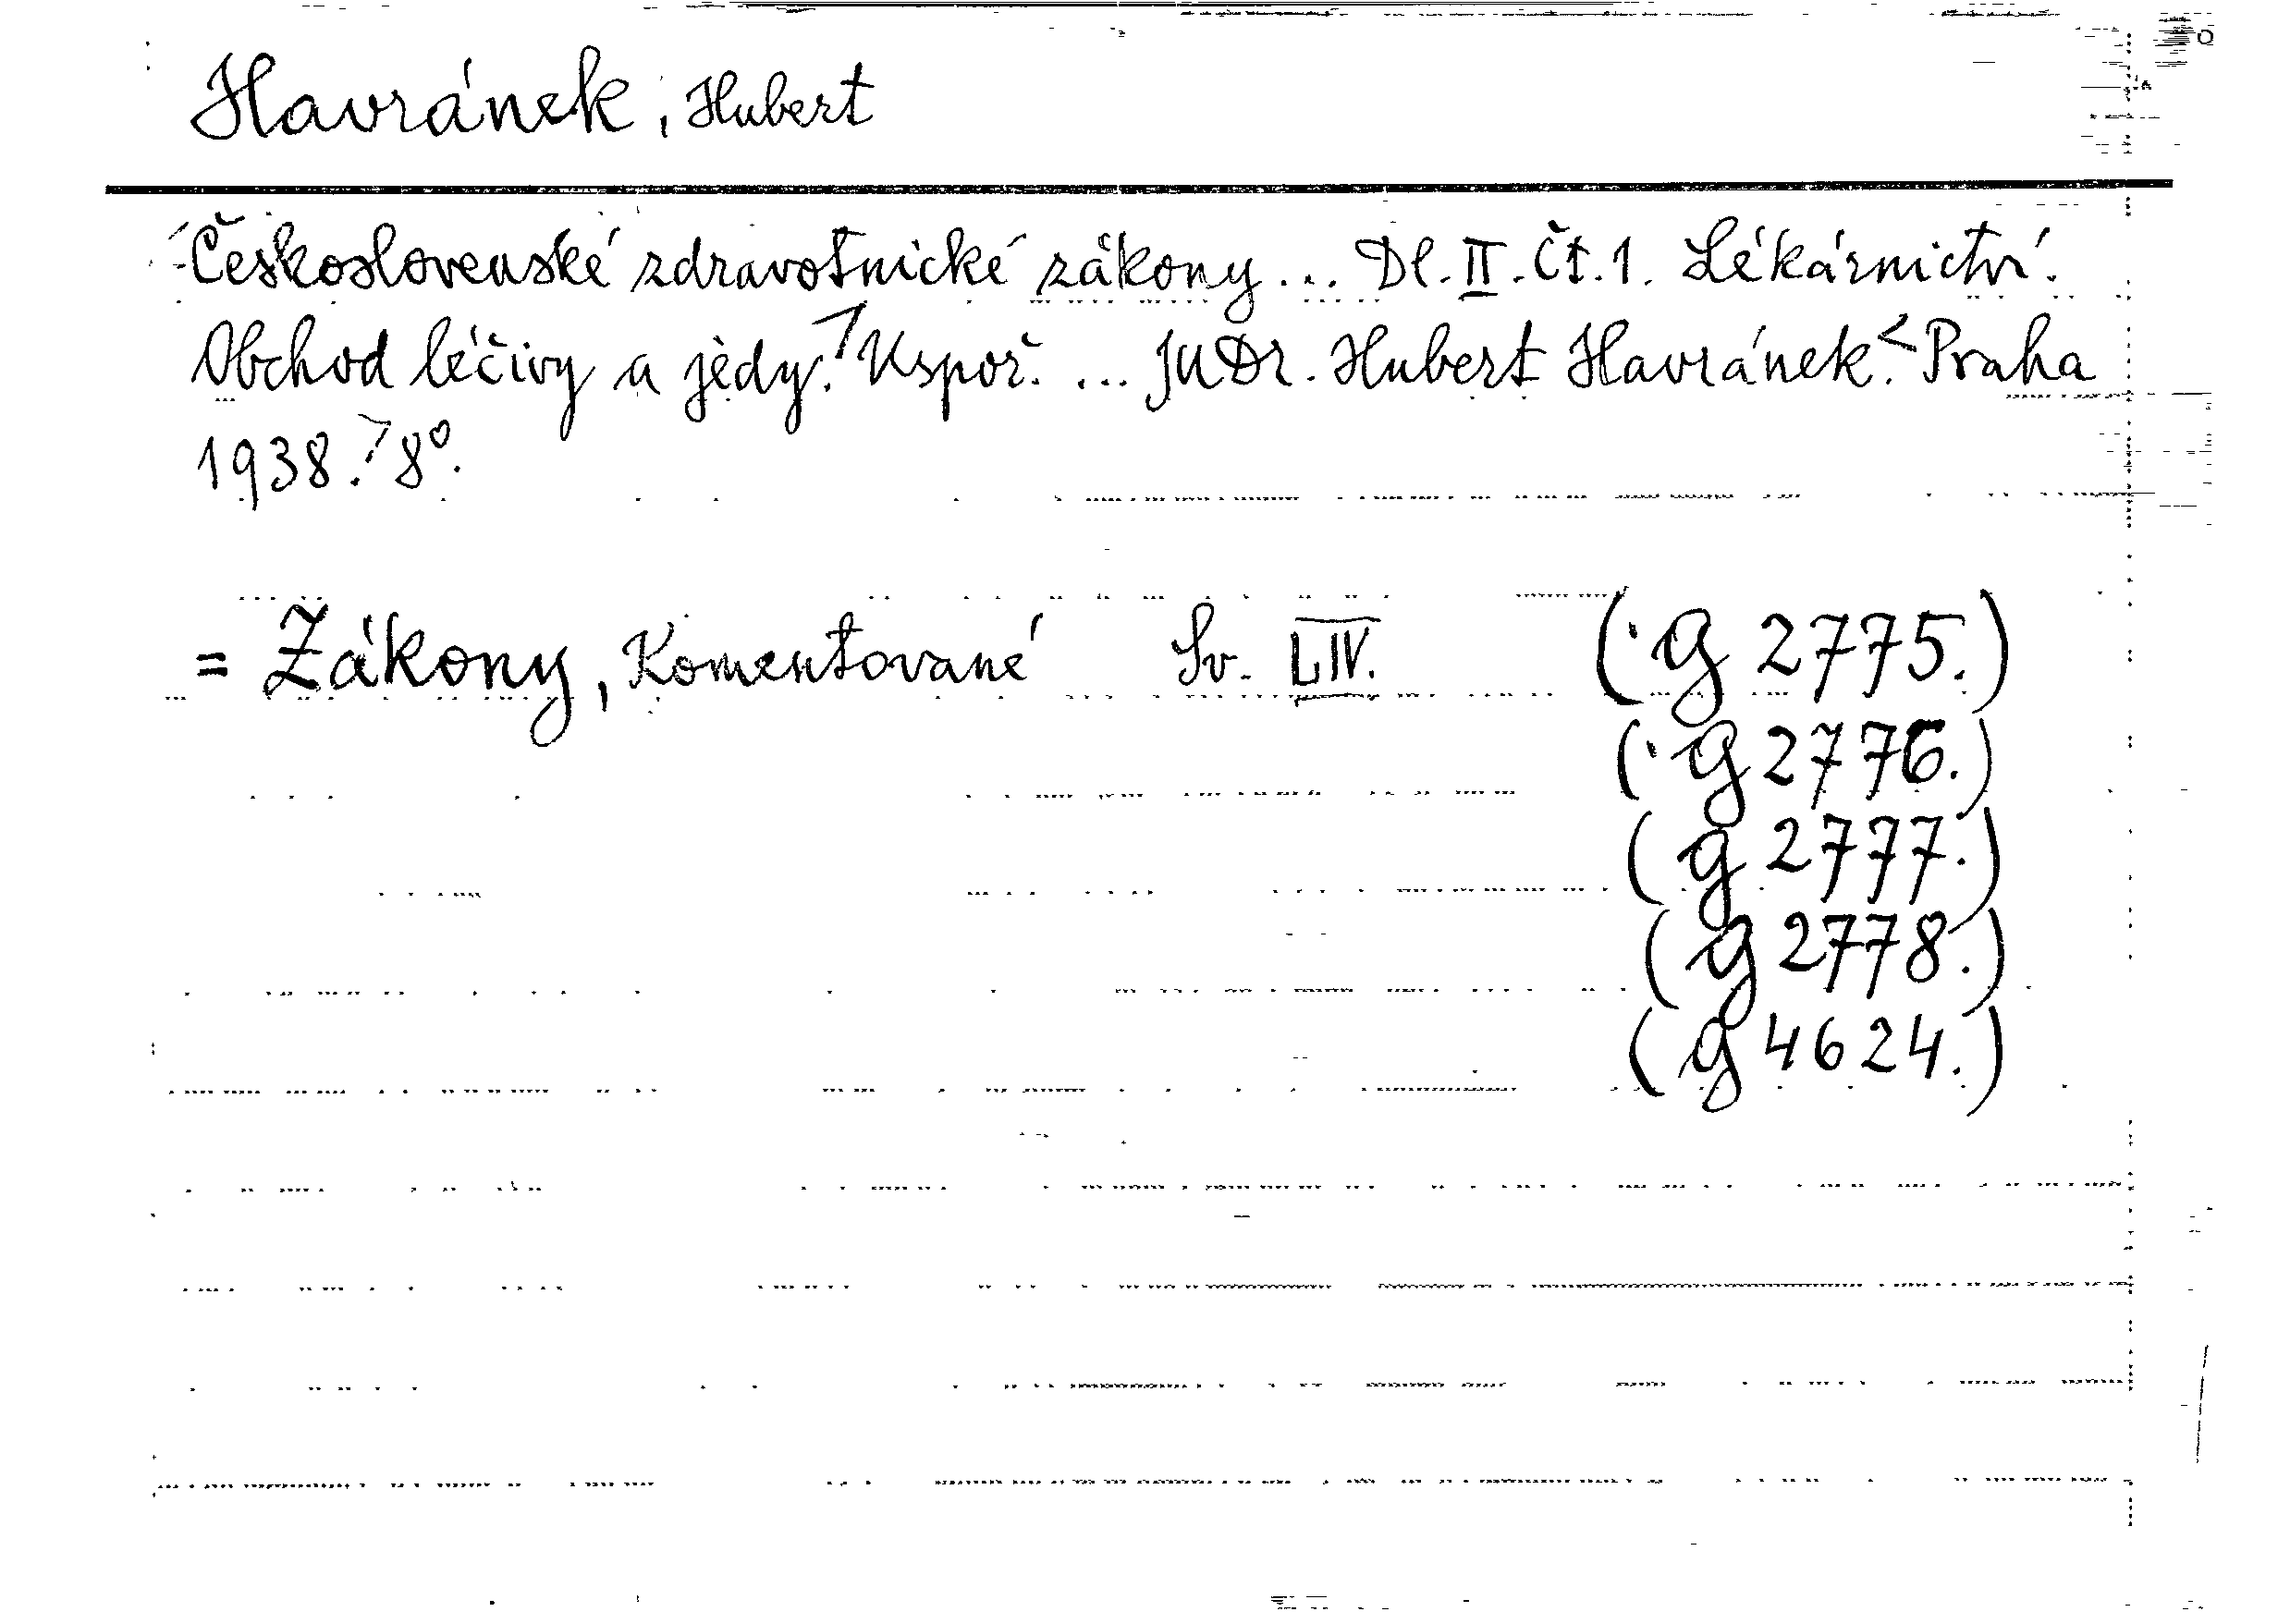 Havránek, Hubert
Československé zdravotnické zákony... Dl. II. Čt. 1. Lékárnictví.
Obchod léčivy a jedy. Uspoř. ... JUDr. Hubert Havránek. Praha
1938. 8°.
= Zákony, Komentované Sv. LIV. (g 2775.)
(g 2776.)
(g 2777.)
(g 2778.)
(g 4624.)